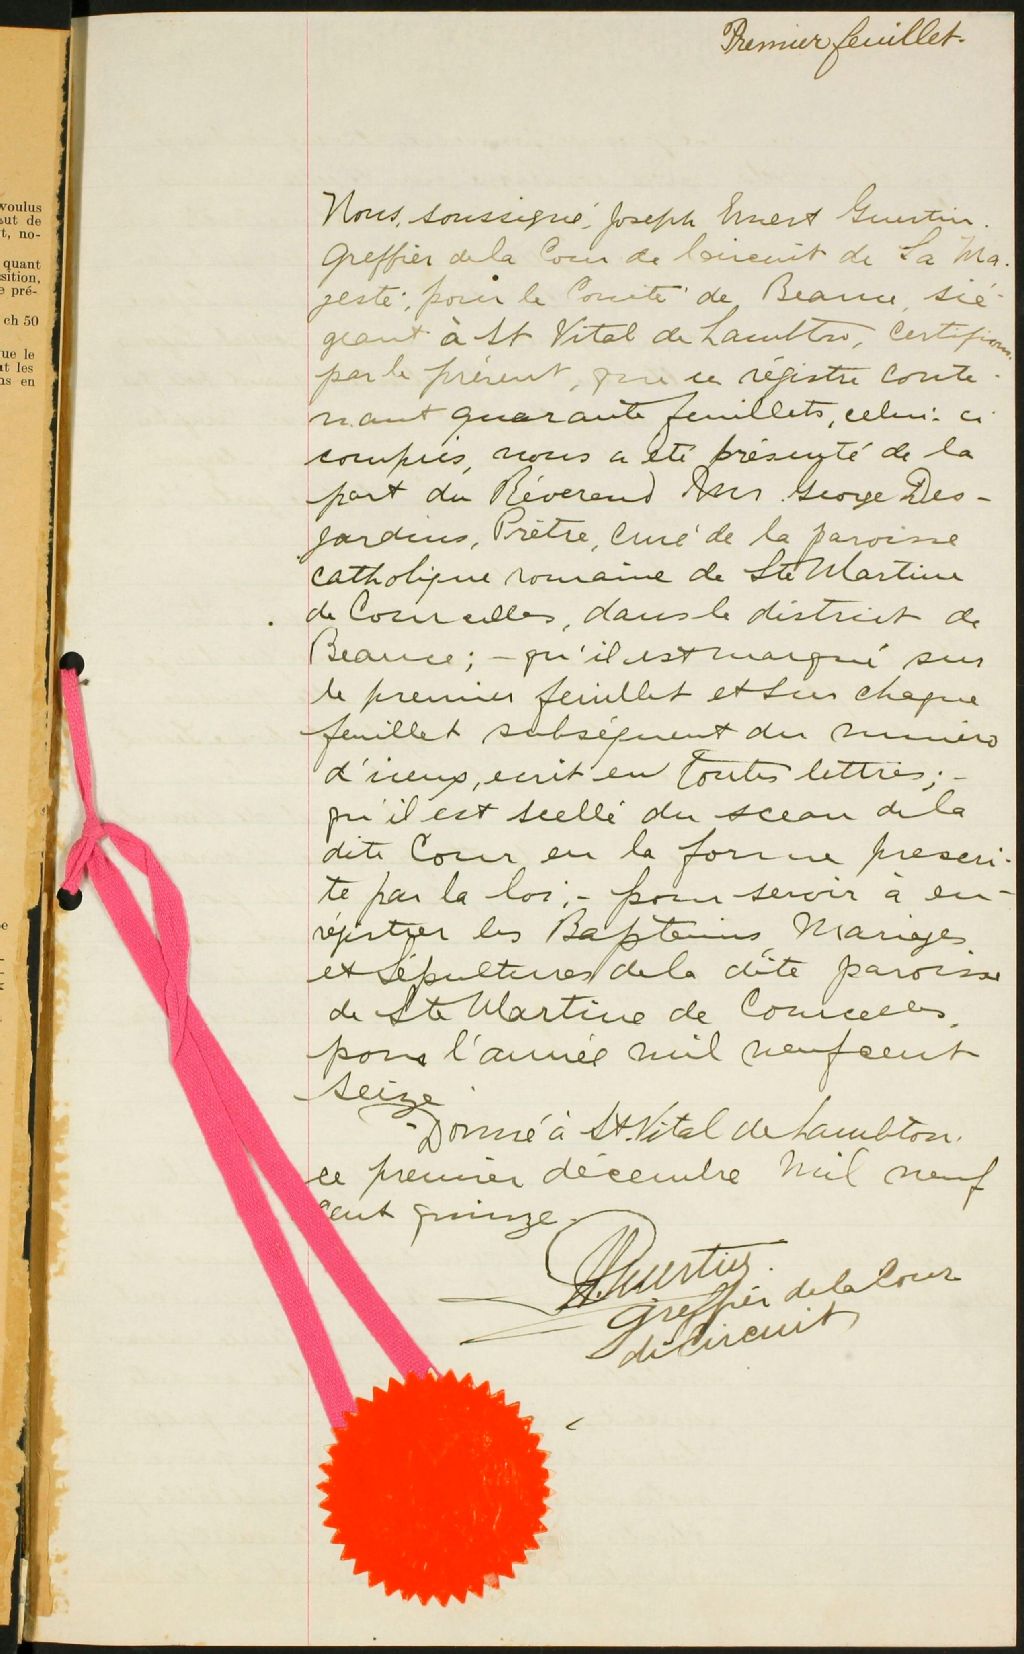 Premier feuillet.
voulus
aut de
t, no-
quant
sition,
e pré-
ch 50
ue le
nt les
ns en
Nous, soussigné, Joseph Ernest Guertin.
Greffier de la Cour de Circuit de Sa Ma-
jesté, pour le Comté de Beauce, sié-
geant à St Vital de Lambton, certifions
par le présent, que ce régistre conte-
nant quarante feuillets, celui-ci
compris, nous a été présenté de la
part du Réverend Mr George Des-
jardins, Prêtre, curé de la paroisse
catholique romaine de Ste Martine
de Courcelles, dans le district de
Beauce; - qu'il est marqué sur
le premier feuillet et sur chaque
feuillet subséquent du numéro
d'iceux, ecrit en toutes lettres; -
qu'il est scellé du sceau de la
dite Cour en la forme prescri-
te par la loi; - pour servir à en-
régistrer les Baptêmes, Mariages
et Sépultures de la dite paroisse
de Ste Martine de Courcelles,
pour l'année mil neuf cent
seize.
Donné à St. Vital de Lambton.
ce premier décembre mil neuf
cent quinze.
Guertin.
Greffier de la Cour
de Circuit